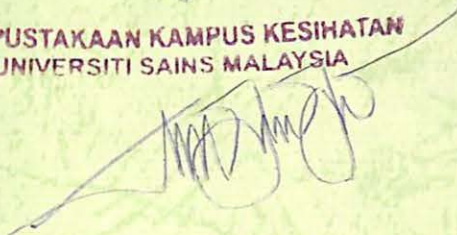 PUSTAKAAN KAMPUS KESIHATAN
UNIVERSITI SAINS MALAYSIA